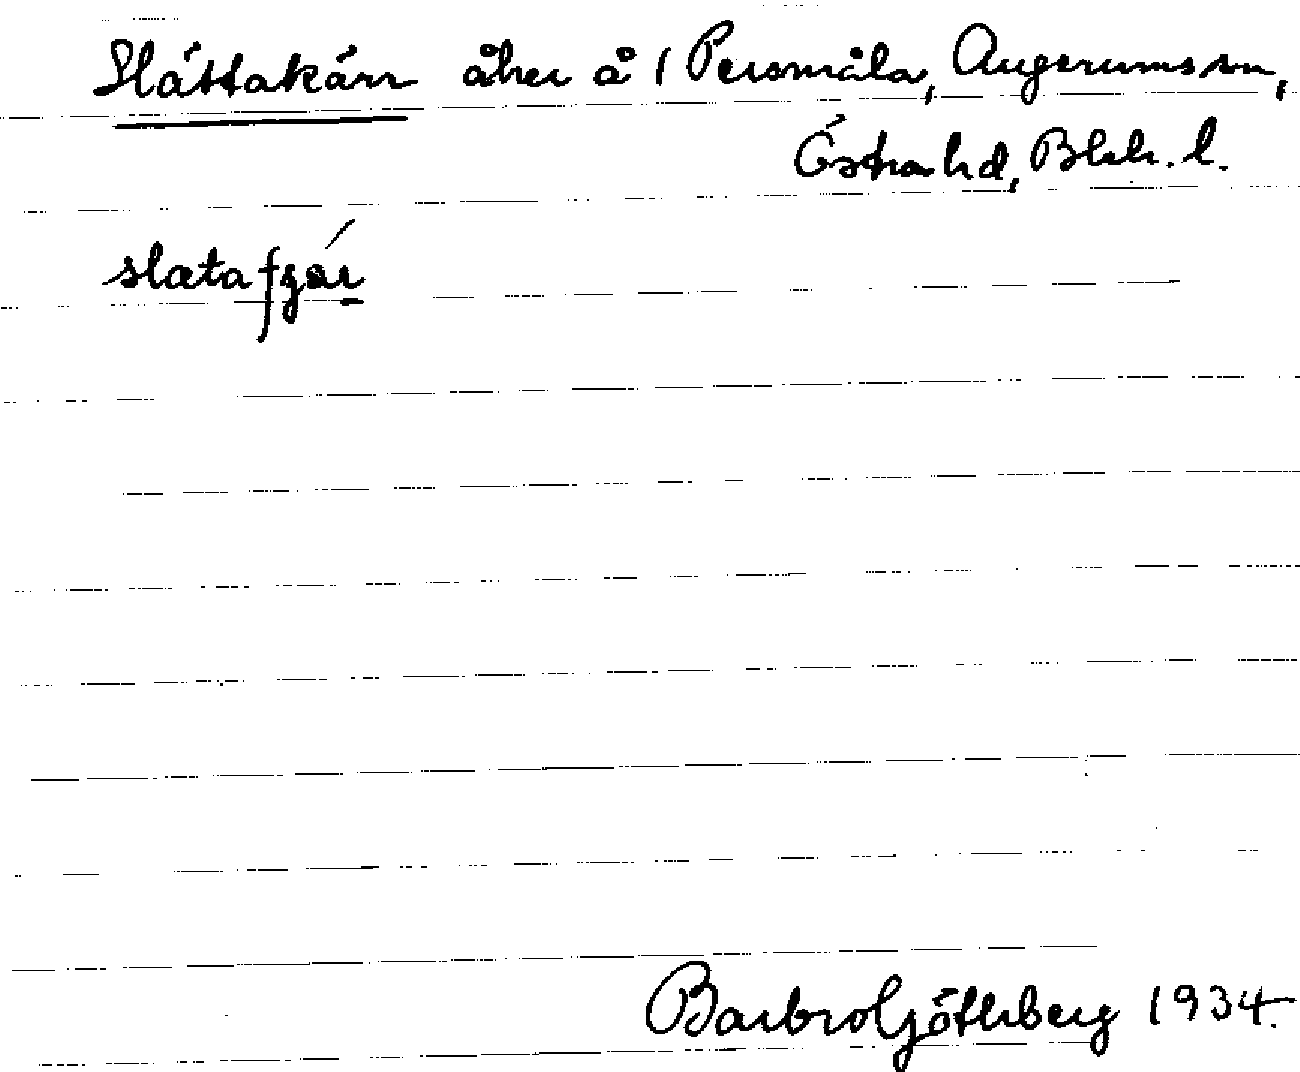 Slättakärr åker å 1 Persmåla, Augerums sn,
Östra hd, Blek. l.
slætafꝁár
Barbro Göthberg 1934.